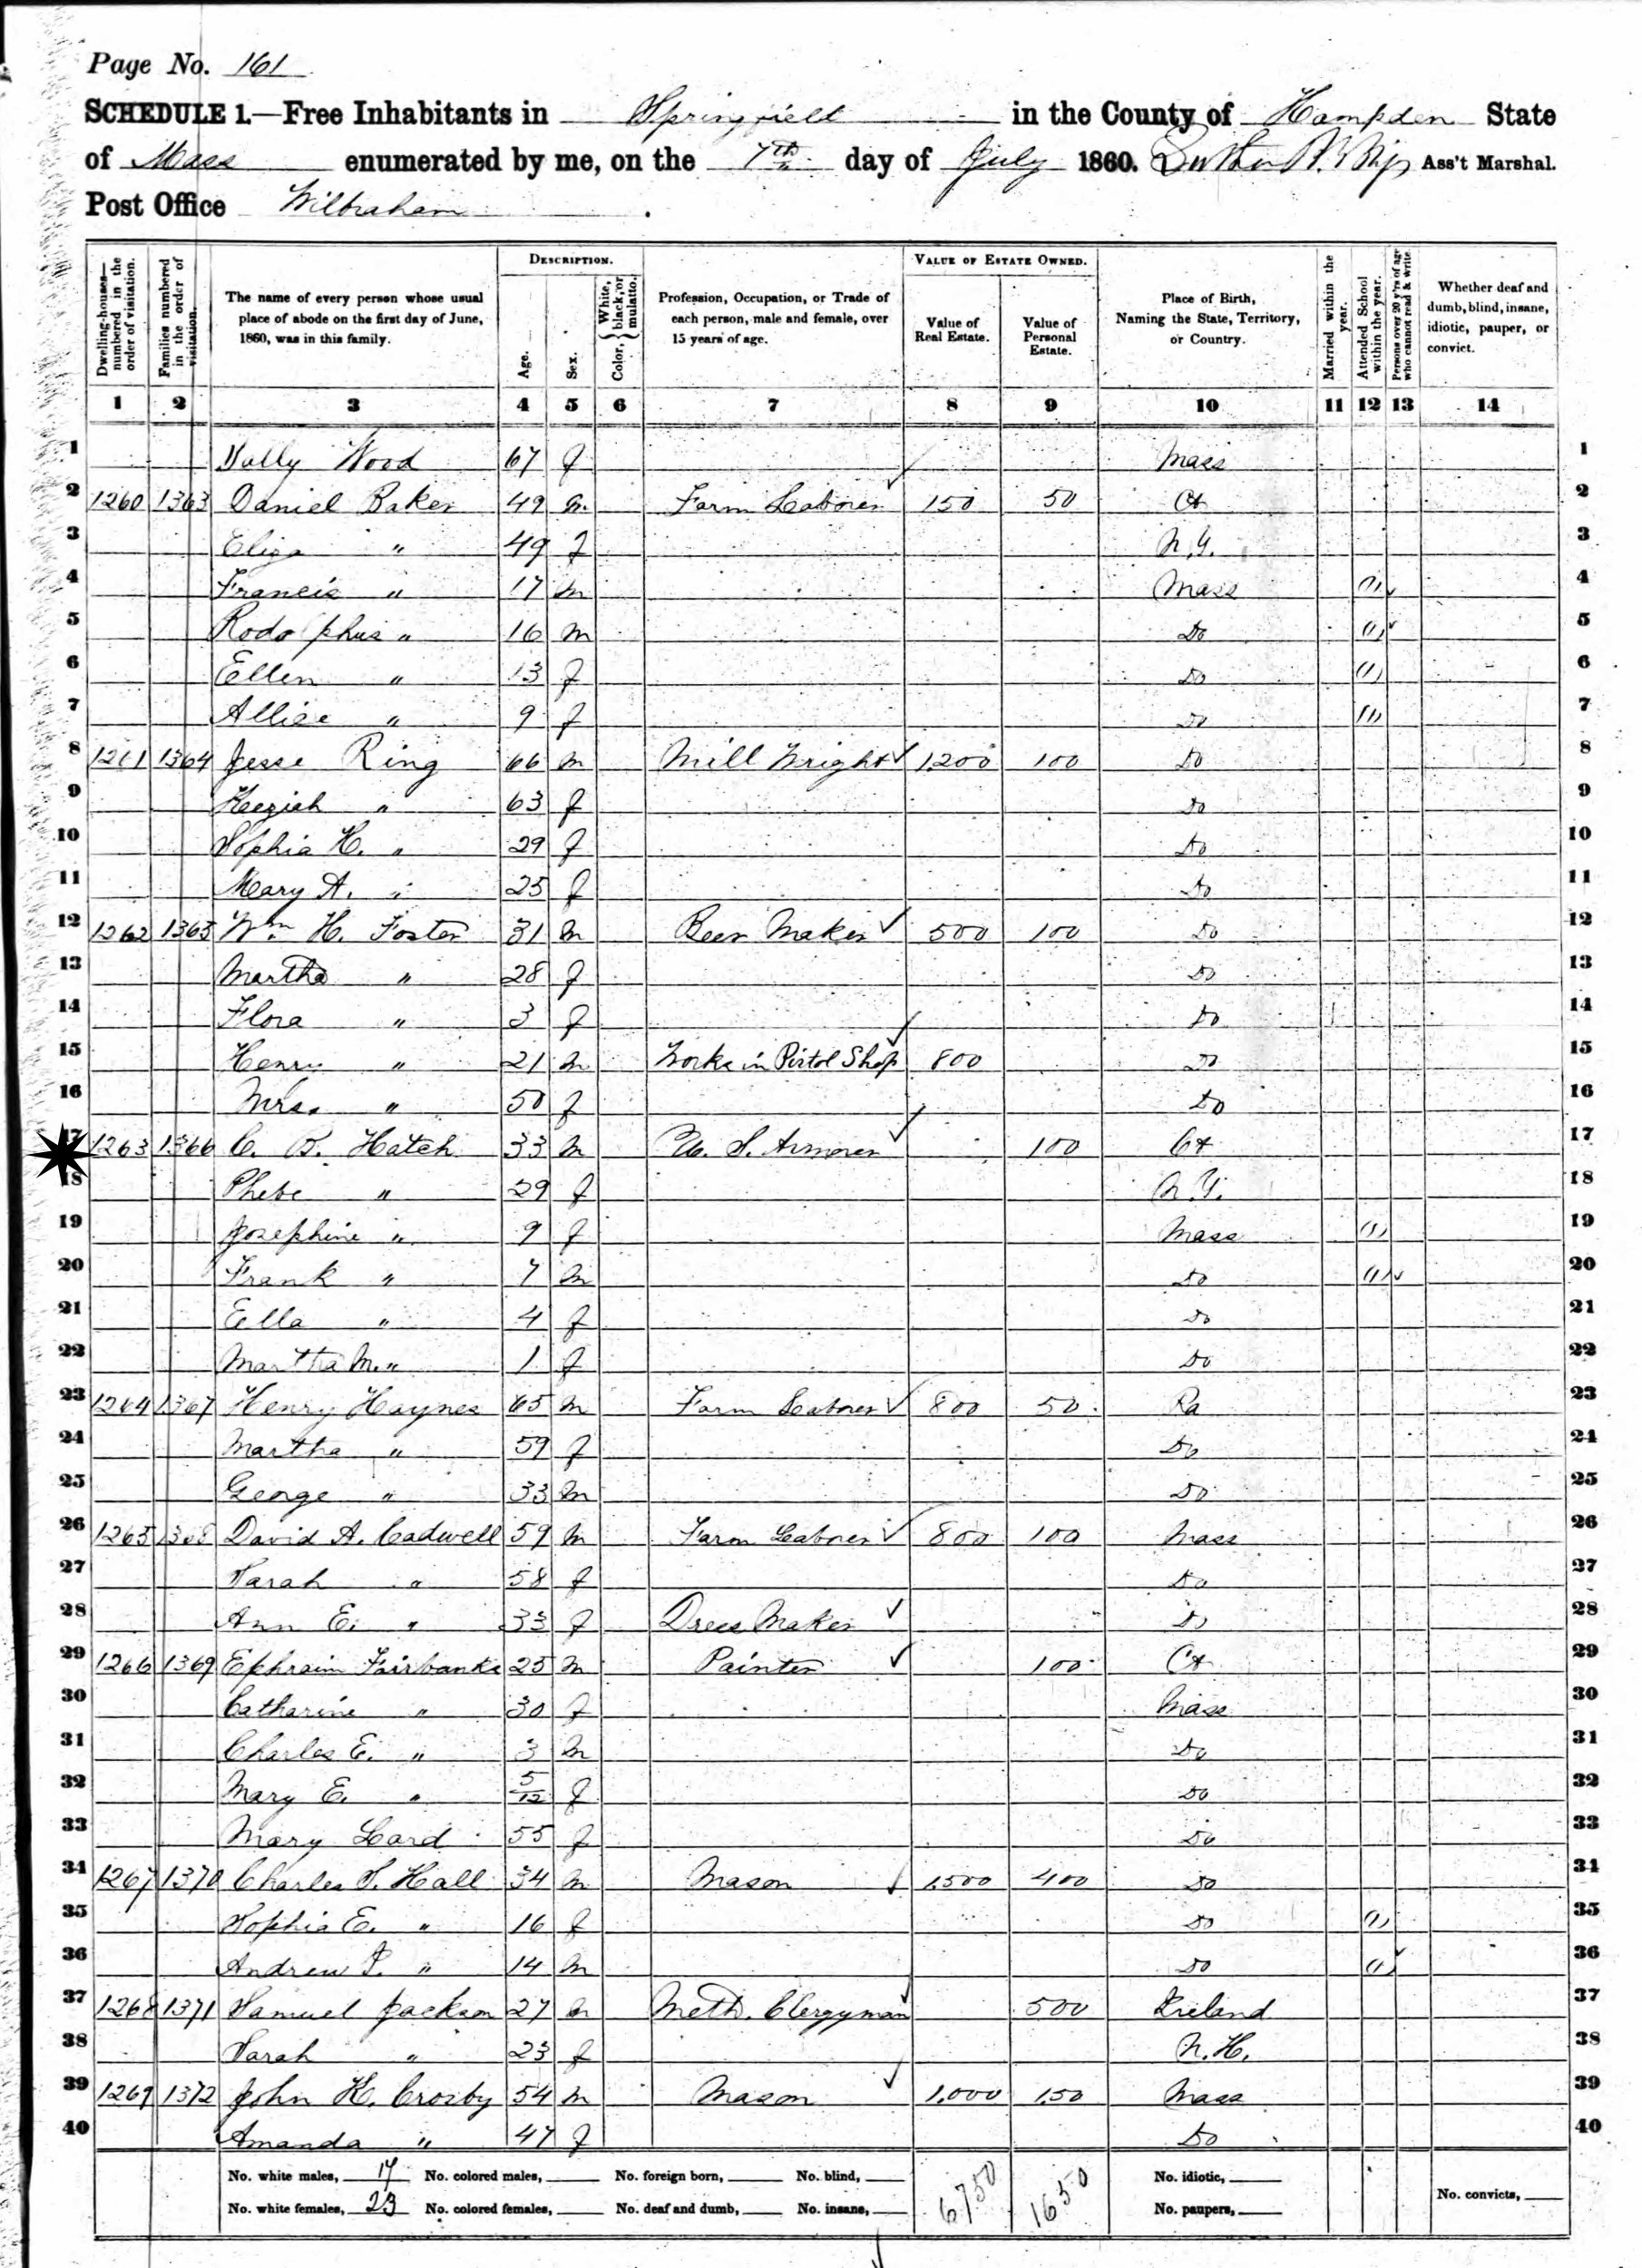 Page No. 161
SCHEDULE 1.—Free Inhabitants in Springfield in the County of Hampden State
of Mass enumerated by me, on the 7th day of July 1860. Ass't Marshal.
Post Office Wilbraham
Dwelling-houses—numbered in the order of visitation.
Families numbered in the order of visitation.
The name of every person whose usual place of abode on the first day of June, 1860, was in this family.
DESCRIPTION.
Age.
Sex.
Color, { White, black, or mulatto.
Profession, Occupation, or Trade of each person, male and female, over 15 years of age.
VALUE OF ESTATE OWNED.
Value of Real Estate.
Value of Personal Estate.
Place of Birth, Naming the State, Territory, or Country.
Married within the year.
Attended School within the year.
Persons over 20 y'rs of age who cannot read & write.
Whether deaf and dumb, blind, insane, idiotic, pauper, or convict.
1 2 3 4 5 6 7 8 9 10 11 12 13 14
1 Sally Wood 67 f Mass 1
2 1260 1363 Daniel Baker 49 m Farm Laborer 150 50 Ct 2
3 Eliza " 49 f N.Y. 3
4 Francis " 17 m Mass 1 4
5 Rodolphus " 16 m Do 1 5
6 Ellen " 13 f Do 1 6
7 Allice " 9 f Do 1 7
8 1261 1364 Jesse Ring 66 m Mill Wright 1,200 100 Do 8
9 Keziah " 63 f Do 9
10 Sophia H. " 29 f Do 10
11 Mary A. " 25 f Do 11
12 1262 1365 Wm H. Foster 31 m Beer Maker 500 100 Do 12
13 Martha " 28 f Do 13
14 Flora " 3 f Do 14
15 Henry " 21 m Works in Pistol Shop 800 Do 15
16 Mrs. " 50 f Do 16
17 1263 1366 C. B. Hatch 33 m U. S. Armorer 100 Ct 17
18 Phebe " 29 f N.Y. 18
19 Josephine " 9 f Mass 1 19
20 Frank " 7 m Do 1 20
21 Ella " 4 f Do 21
22 Martha M. " 1 f Do 22
23 1264 1367 Henry Haynes 65 m Farm Laborer 800 50 23
24 Martha " 59 f Do 24
25 George " 33 m Do 25
26 1265 1368 David A. Cadwell 59 m Farm Laborer 800 100 Mass 26
27 Sarah " 58 f Do 27
28 Ann E. " 33 f Dress Maker Do 28
29 1266 1369 Ephraim Fairbanks 25 m Painter 100 Ct 29
30 Catharine " 30 f Mass 30
31 Charles E. " 3 m Do 31
32 Mary E. " 5/12 f Do 32
33 Mary Lard 55 f Do 33
34 1267 1370 Charles S. Hall 34 m Mason 1,500 400 Do 34
35 Sophia E. " 16 f Do 1 35
36 Andrew " 14 m Do 1 36
37 1268 1371 Samuel Jackson 27 m Meth. Clergyman 500 Ireland 37
38 Sarah " 23 f N.H. 38
39 1269 1372 John K. Crosby 54 m Mason 1,000 150 Mass 39
40 Amanda " 47 f Do 40
No. white males, 17 No. colored males, No. foreign born, No. blind, 6750 1650 No. idiotic,
No. white females, 23 No. colored females, No. deaf and dumb, No. insane, No. paupers, No. convicts,